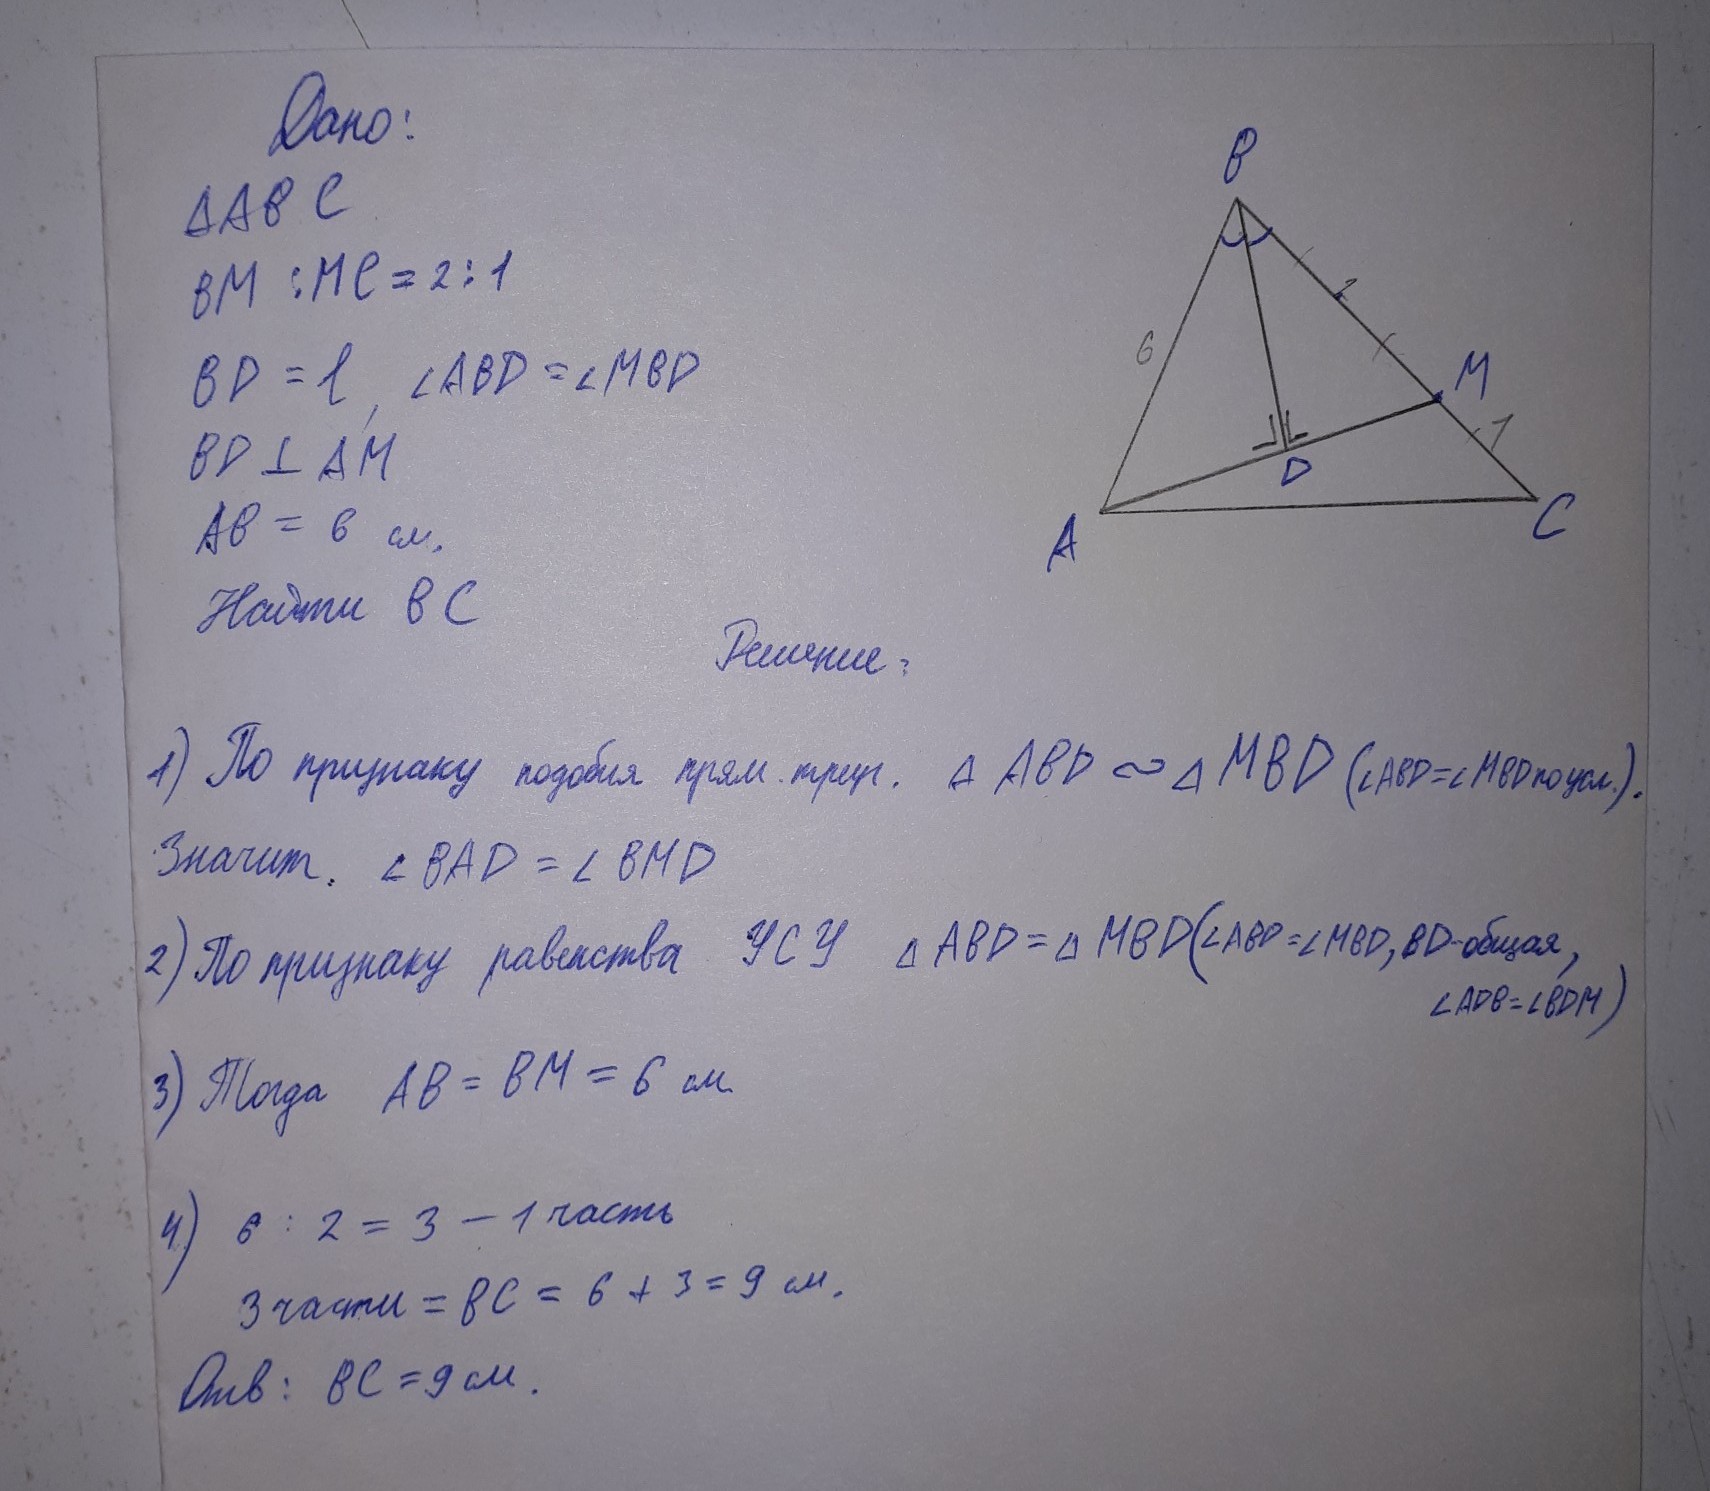 Дано:
△ABC
BM : MC = 2 : 1
BD = l, ∠ABD = ∠MBD
BD ⊥ AM
AB = 6 см.
Найти BC
B
6
2
M
1
D
A
C
Решение:
1) По признаку подобия прям. треуг. △ ABD ∾ △ MBD (∠ABD = ∠MBD по усл.).
Значит. ∠BAD = ∠BMD
2) По признаку равенства УСУ △ABD = △ MBD (∠ABD = ∠MBD, BD - общая,
∠ADB = ∠BDM)
3) Тогда AB = BM = 6 см.
4) 6 : 2 = 3 — 1 часть
3 части = BC = 6 + 3 = 9 см.
Отв: BC = 9 см.